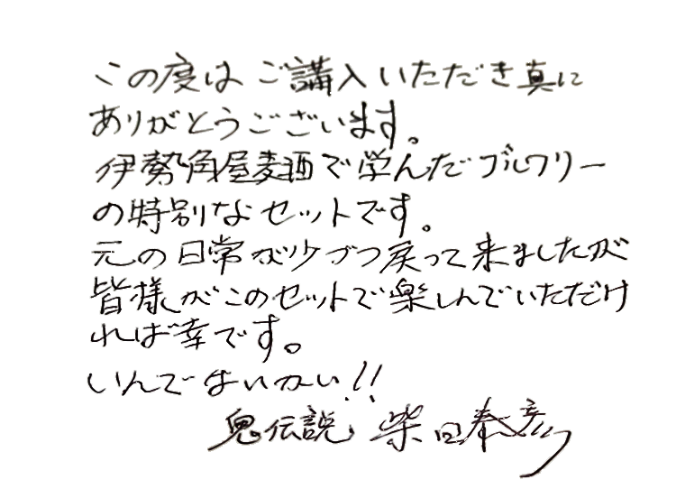 この度はご講入いただき真に
ありがとうございます。
伊勢角屋麦酒で学んだブルワリー
の特別なセットです。
元の日常が少づつ戻って来ましたが
皆様がこのセットで楽しんでいただけ
れば幸です。
いんでないかい!!
鬼伝説 柴田泰彦